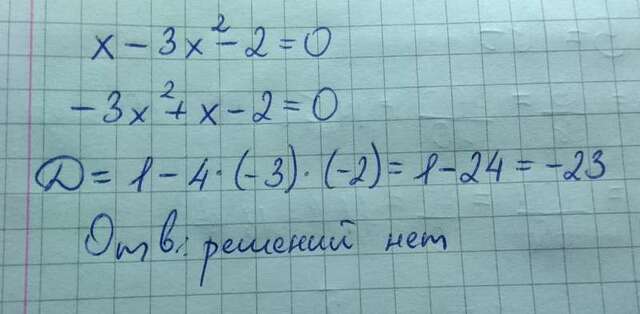 x - 3x² - 2 = 0
-3x² + x - 2 = 0
D = 1 - 4 · (-3) · (-2) = 1 - 24 = -23
Отв: решений нет